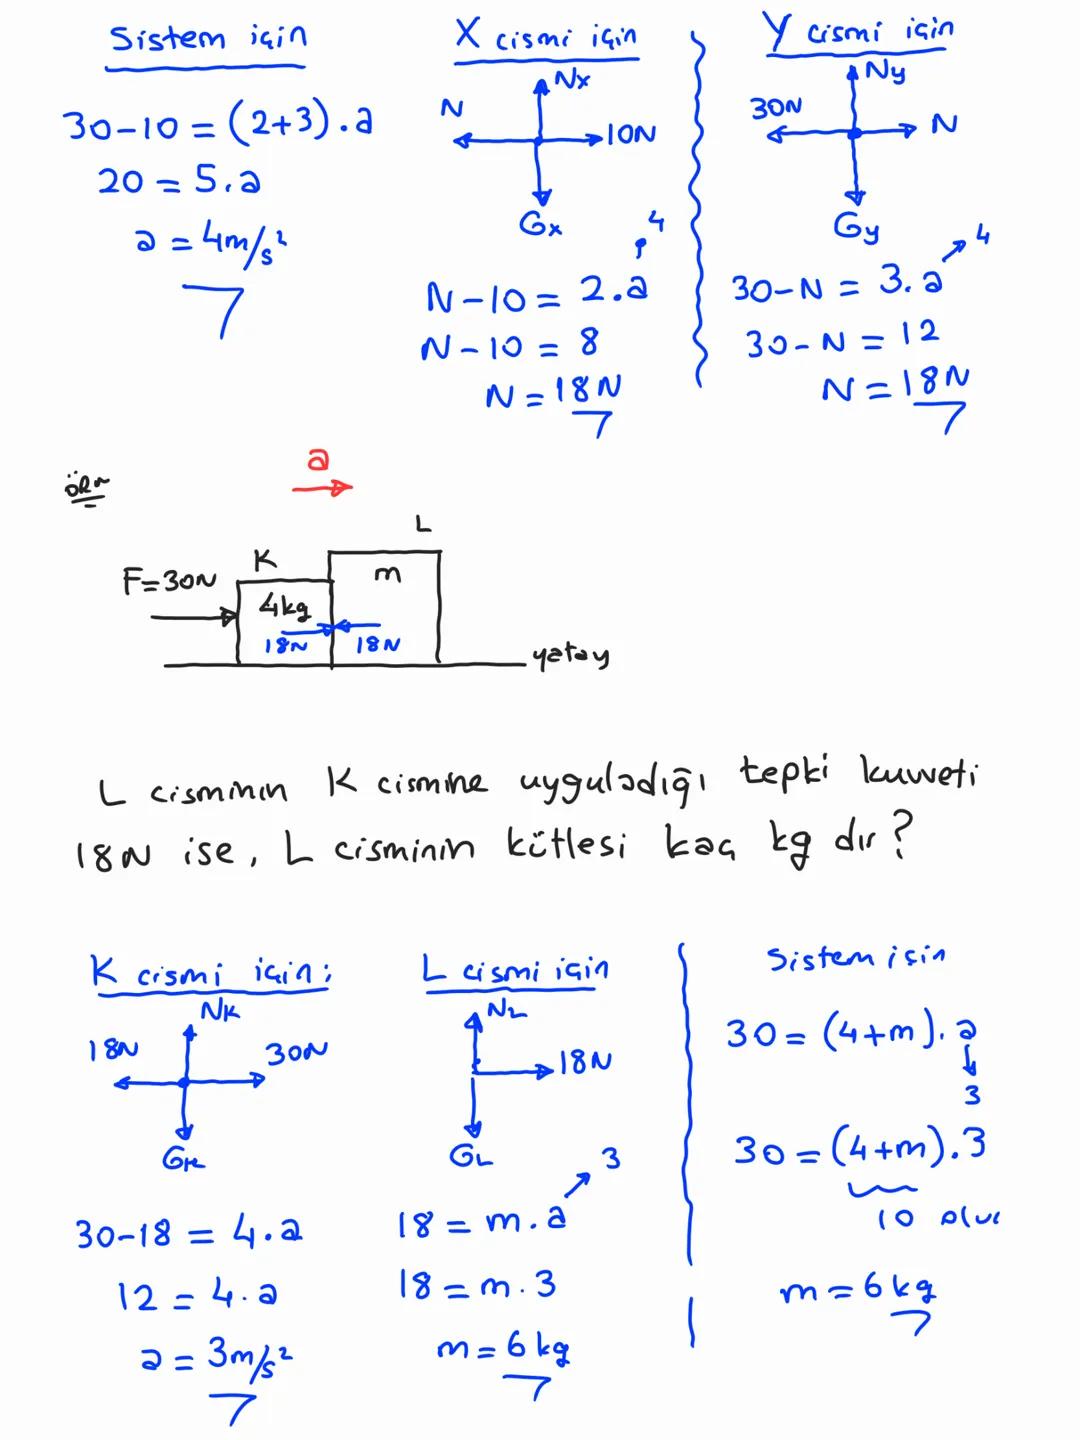 Sistem için
30-10 = (2+3).a
20 = 5.a
a = 4m/s²
X cismi için
Nx
N
10N
Gx
4
N-10 = 2.a
N-10 = 8
N = 18N
Y cismi için
Ny
30N
N
Gy
4
30-N = 3.a
30-N = 12
N = 18N
örn
a
L
K
m
F=30N
4kg
18N
18N
yatay
L cisminin K cismine uyguladığı tepki kuvveti
18N ise, L cisminin kütlesi kaç kg dır?
K cismi için:
NK
18N
30N
GK
30-18 = 4.a
12 = 4.a
a = 3m/s²
L cismi için
NL
18N
GL
3
18 = m.a
18 = m.3
m = 6kg
Sistem için
30 = (4+m).a
3
30 = (4+m).3
10 olur
m = 6kg